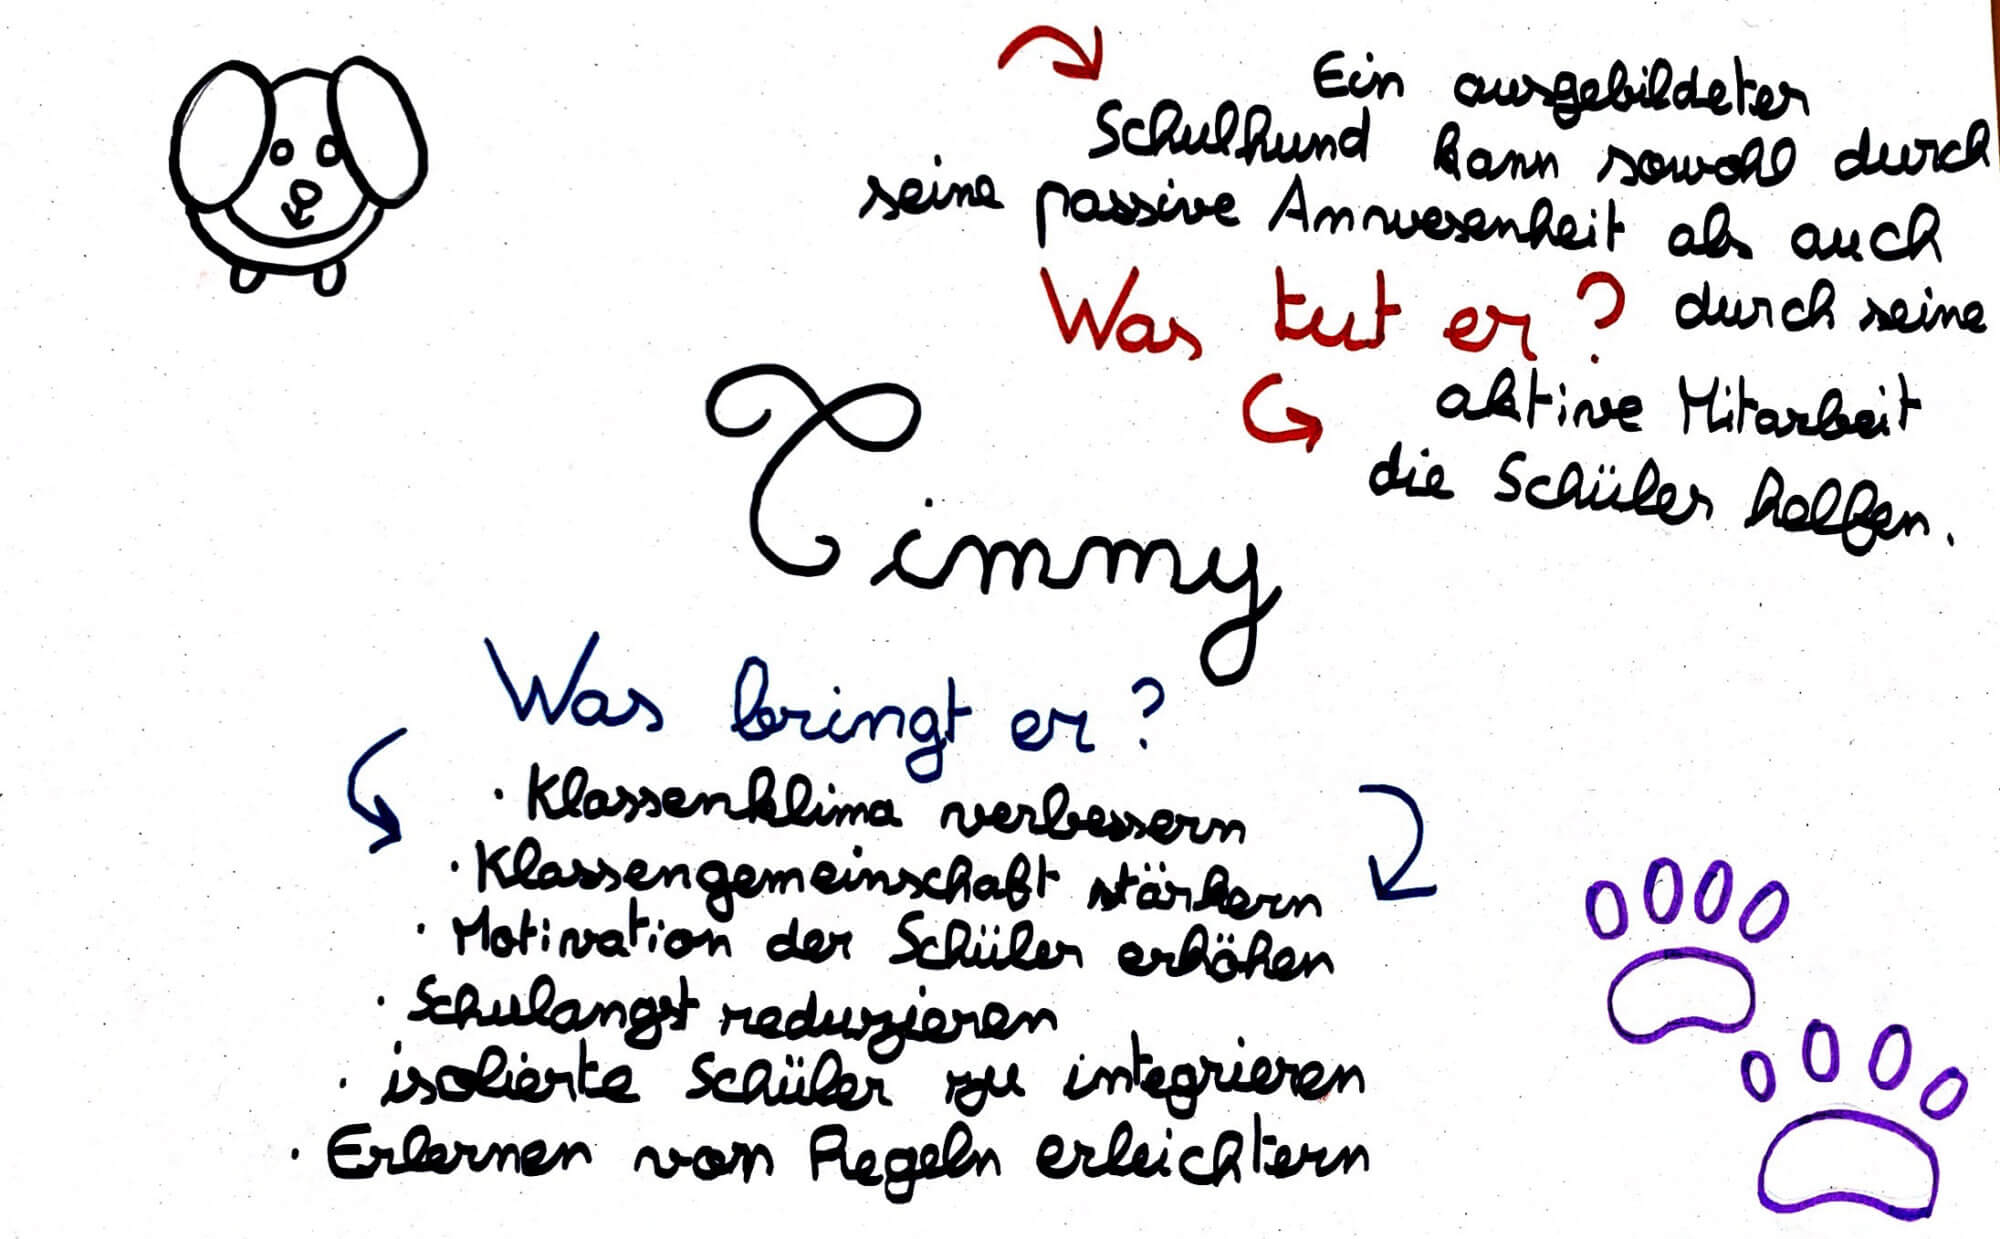 Ein ausgebildeter
Schulhund kann sowohl durch
seine passive Anwesenheit als auch
Was tut er? durch seine
aktive Mitarbeit
die Schüler helfen.
Timmy
Was bringt er?
· Klassenklima verbessern
· Klassengemeinschaft stärkern
· Motivation der Schüler erhöhen
· Schulangst reduzieren
· isolierte Schüler zu integrieren
· Erlernen von Regeln erleichtern